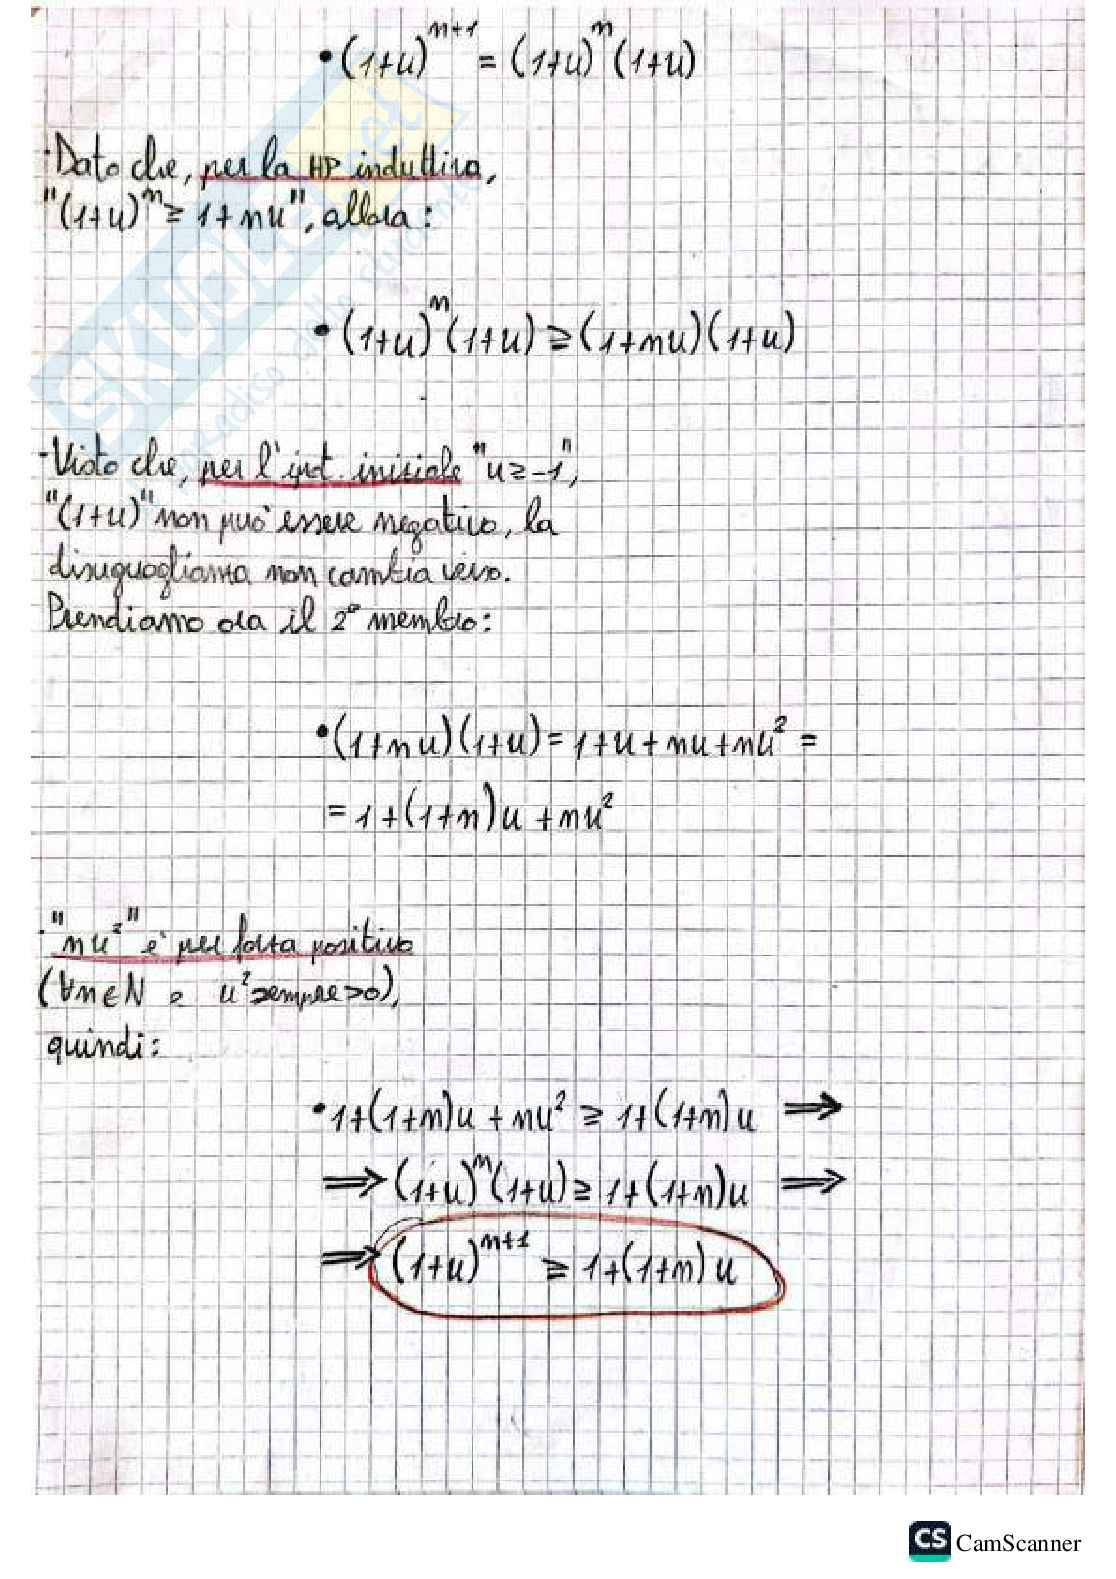 •(1+u)^{n+1} = (1+u)^n (1+u)
·Dato che, per la HP induttiva,
"(1+u)^n ≥ 1+nu", allora:
•(1+u)^n (1+u) ≥ (1+nu)(1+u)
-Visto che, per l'ipot. iniziale "u≥-1",
"(1+u)" non può essere negativo, la
disuguaglianza non cambia verso.
Prendiamo ora il 2° membro:
•(1+nu)(1+u) = 1+u+nu+nu² =
= 1+(1+n)u + nu²
·"nu²" è per forza positivo
(∀n∈N e u² sempre >0),
quindi:
•1+(1+n)u + nu² ≥ 1+(1+n)u ⇒
⇒ (1+u)^n (1+u) ≥ 1+(1+n)u ⇒
⇒ (1+u)^{n+1} ≥ 1+(1+n)u
CS CamScanner